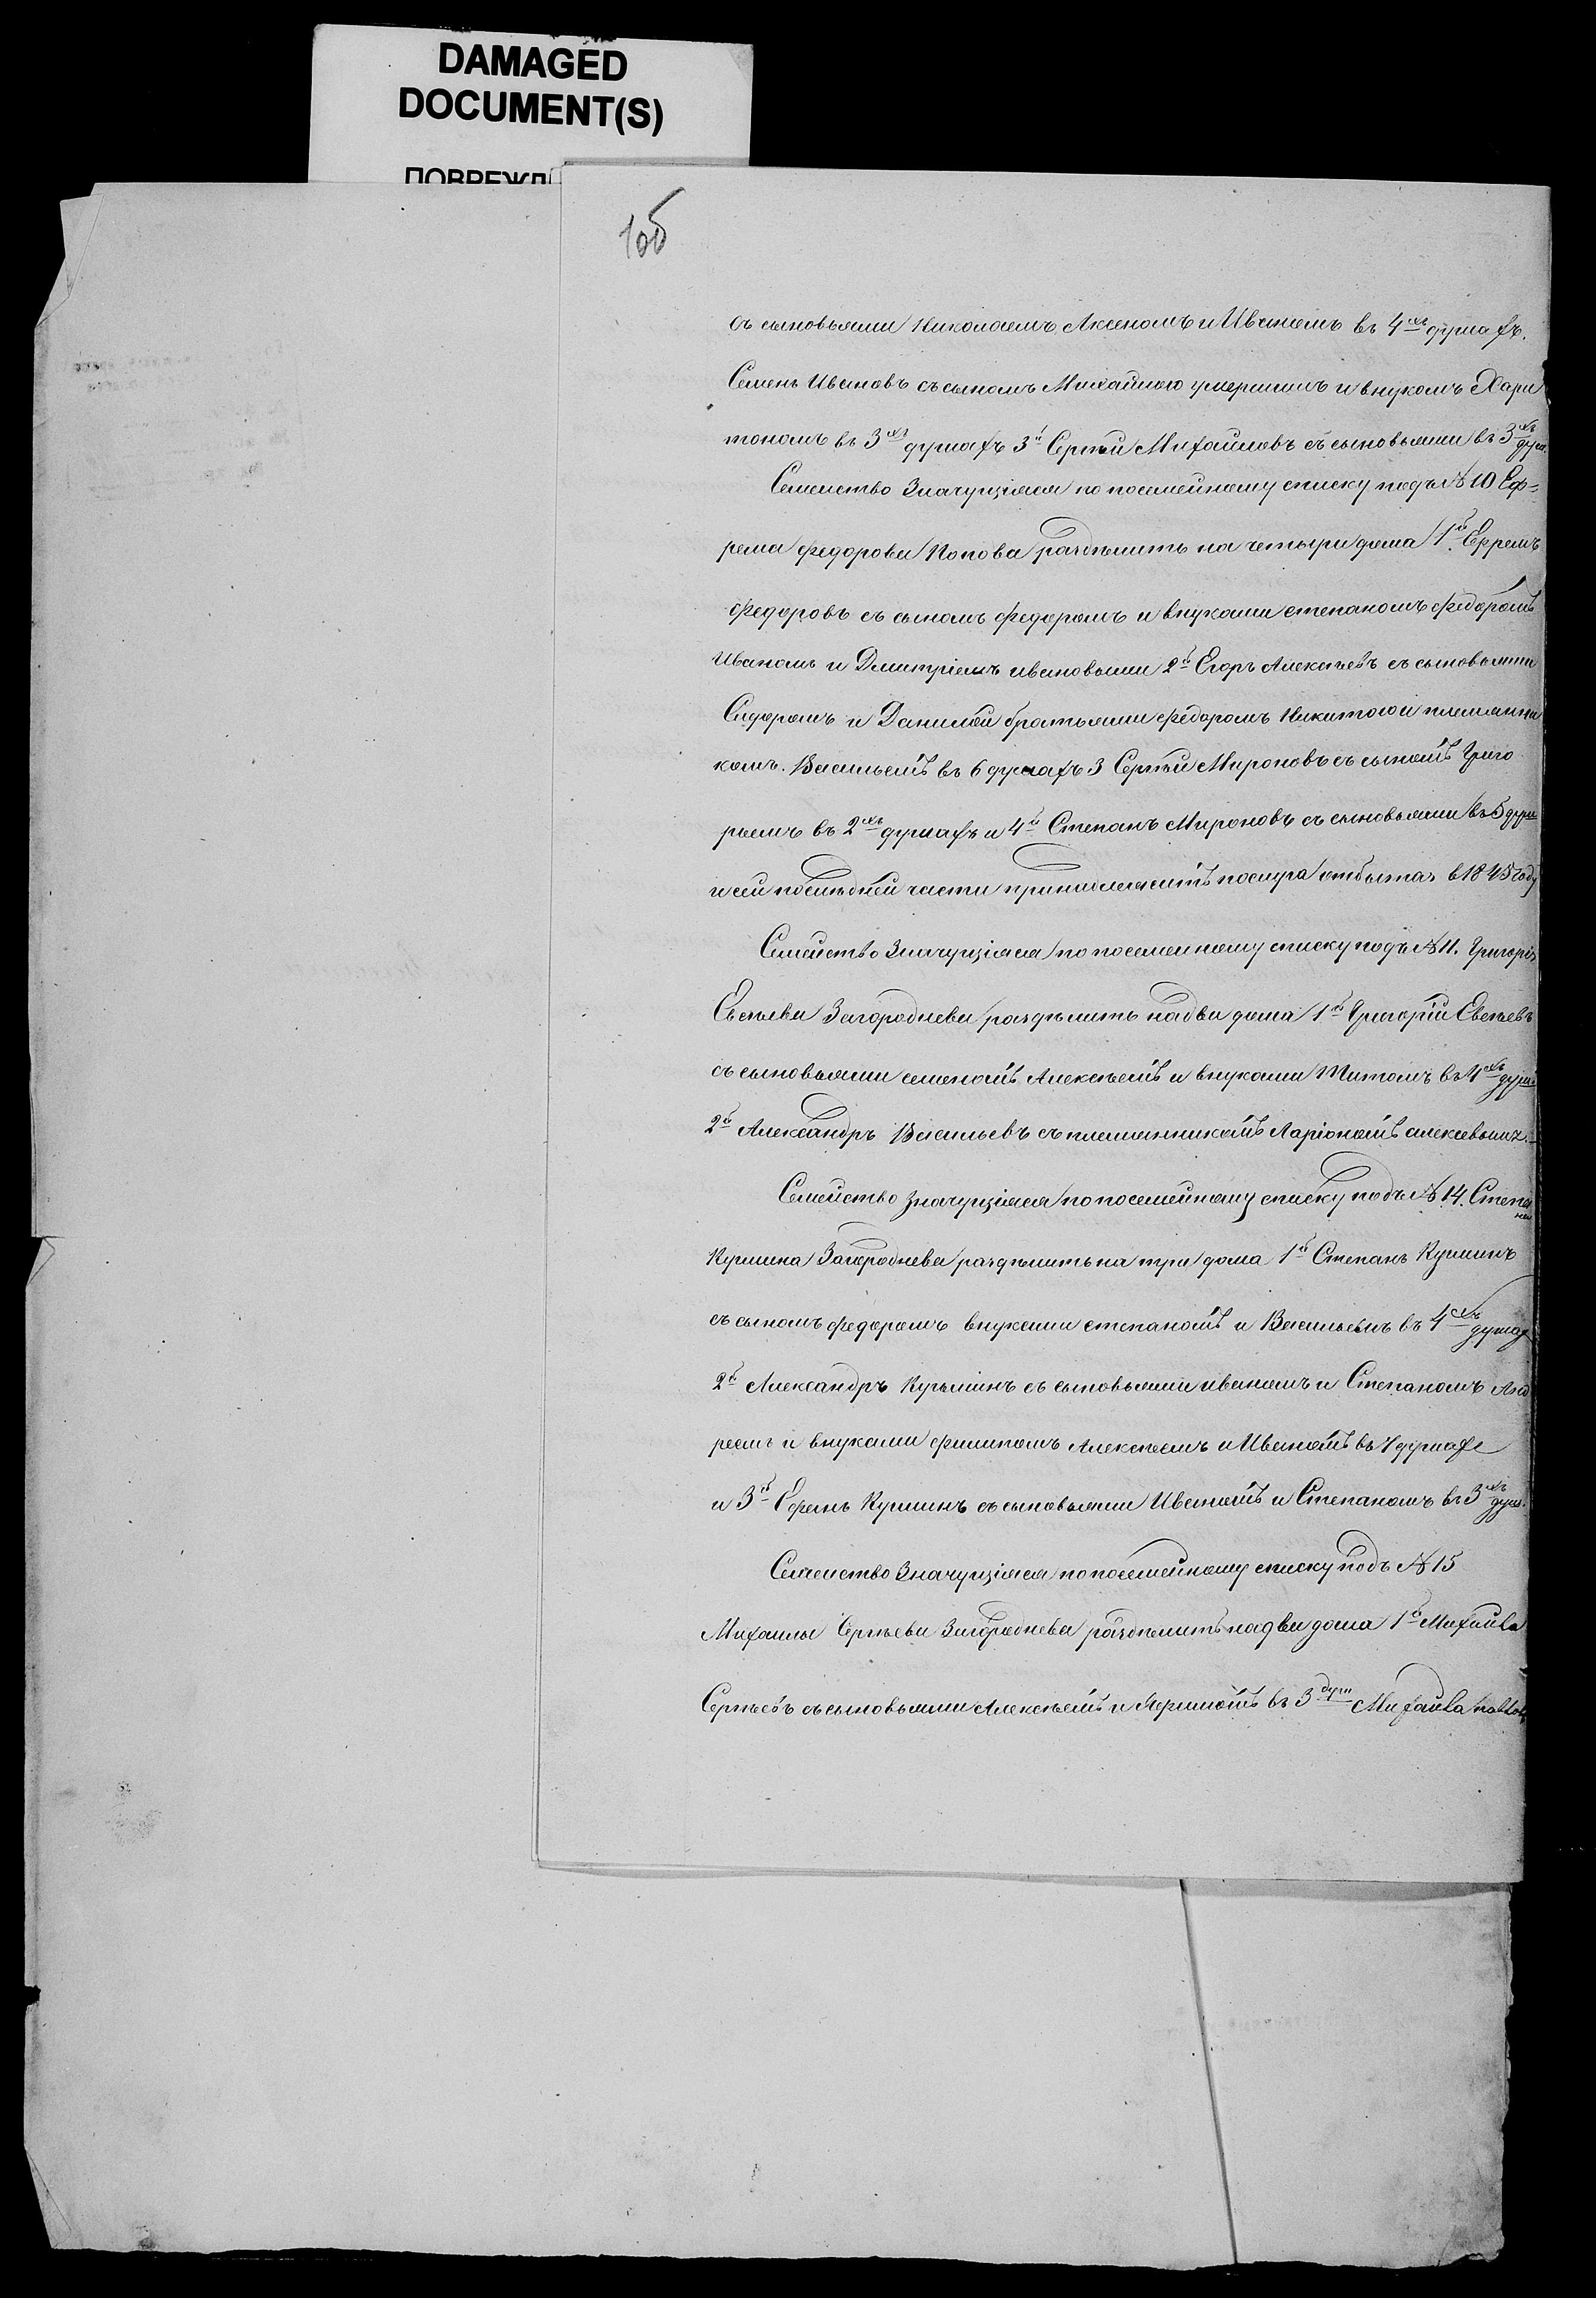 DAMAGED
DOCUMENT(S)
ПОВРЕЖД
106
съ сыновьями Николаемъ Аксеномъ и Иваномъ въ 4хъ душахъ.
Семенъ Ивановъ съ сыномъ Михайлою умершимъ и внукомъ Хари
тономъ въ 3хъ душахъ 3й Сергѣй Михайловъ съ сыновьями въ 3хъ душ.
Семейство Значущіяся по посемейному списку подъ № 10 Еф=
рема Федорова Попова раздѣлить на четыри дома 1й Ефремъ
Федоровъ съ сыномъ Федоромъ и внуками степаномъ Федоромъ
Иваномъ и Дмитріемъ ивановыми 2й Егоръ Алексѣевъ съ сыновьями
Сидоромъ и Данилой братьями Федоромъ Никитою и племянни
комъ. Васильемъ въ 6 душахъ 3 Сергѣй Мироновъ съ сыномъ Григо
рьемъ въ 2хъ душахъ и 4й Степанъ Мироновъ съ сыновьями въ 5 душ
и сей последней части принадлежитъ отбытая в 1845 году
Семейство Значущіяся по посемейному списку подъ № 11. Григорія
Евсѣева Загороднева раздѣлить на два дома 1й Григорій Евсѣевъ
съ сыновьями семеномъ Алексѣемъ и внуками Титомъ въ 4хъ душ
2й Александръ Васильевъ съ племянникомъ Ларіономъ алексѣевымъ.
Семейство Значущіяся по посемейному списку подъ № 14. Степа
на
Кузмина Загороднева раздѣлить на три дома 1й Степанъ Кузминъ
съ сыномъ Федоромъ внуками степаномъ и Васильемъ въ 4хъ душах
2й Александръ Кузьминъ съ сыновьями иваномъ и Степаномъ Анд
реемъ и внуками филипомъ Алексѣемъ и Иваномъ въ 7 душахъ
и 3й Кузминъ съ сыновьями Иваномъ и Степаномъ въ 3хъ душ.
Семейство Значущіяся по посемейному списку подъ № 15
Михаилы Сергѣева Загороднева раздѣлить на два дома 1й Михайла
Сергѣевъ съ сыновьями Алексѣемъ и въ 3 душ Михайла